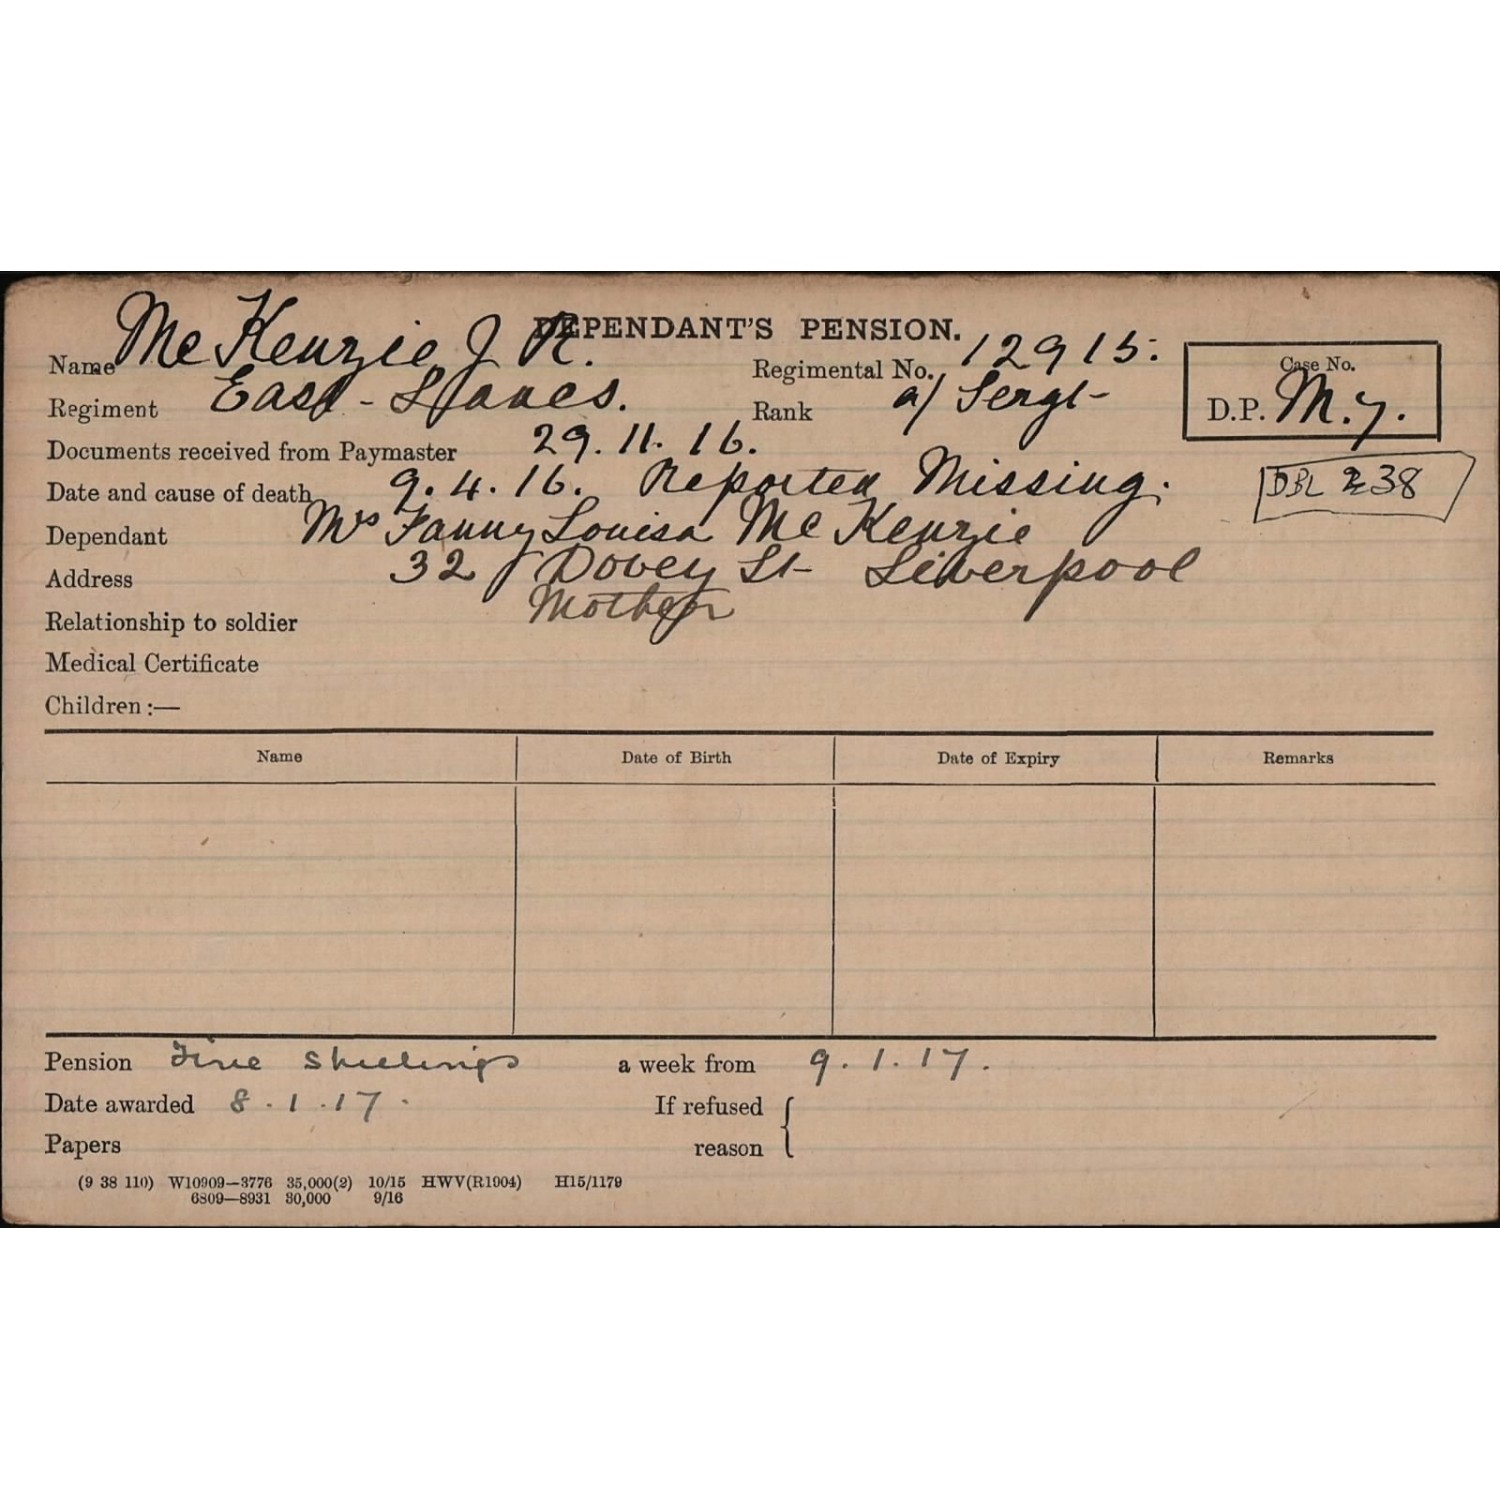 DEPENDANT'S PENSION.
Name McKenzie J R. Regimental No. 12915. Case No.
Regiment East-Lancs. Rank a/ Sergt- D.P. M.7.
Documents received from Paymaster 29.11.16.
Date and cause of death 9.4.16. Reported Missing. DBL 238
Dependant Mrs Fanny Louisa McKenzie
Address 32 Dovey St- Liverpool
Relationship to soldier Mother
Medical Certificate
Children :—
Name Date of Birth Date of Expiry Remarks
Pension Five Shillings a week from 9.1.17.
Date awarded 8.1.17. If refused
Papers reason
(9 38 110) W10909—3776 35,000(2) 10/15 HWV(R1904) H15/1179
6809—8931 30,000 9/16